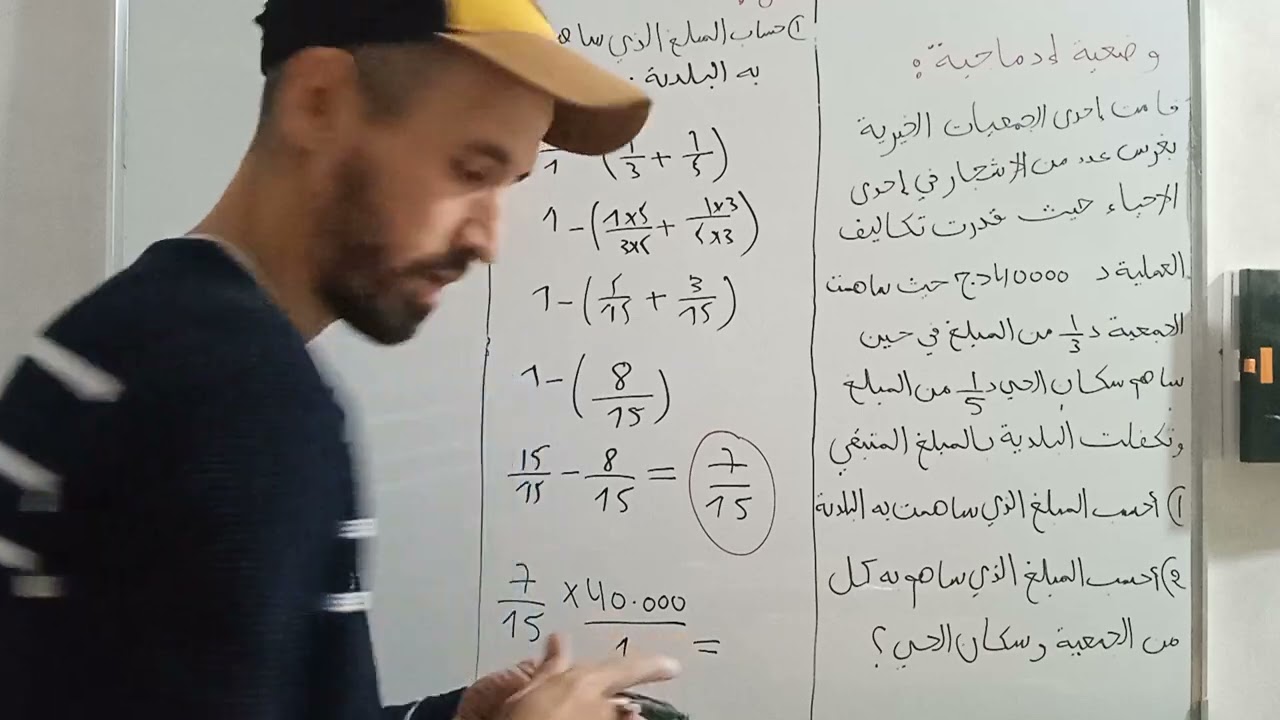 وضعية إدماجية :
قامت إحدى الجمعيات الخيرية
بغرس عدد من الأشجار في إحدى
الأحياء حيث قدرت تكاليف
العملية د 40000دج حيث ساهمت
الجمعية د 1/3 من المبلغ في حين
ساهم سكان الحي د 1/5 من المبلغ
وتكفلت البلدية بالمبلغ المتبقي
1) أحسب المبلغ الذي ساهمت به البلدية
2) أحسب المبلغ الذي ساهم به كل
من الجمعية وسكان الحي ؟
1) حساب المبلغ الذي
به البلدية .
1 (1/3 + 1/5)
1 - (1x5/3x5 + 1x3/5x3)
1 - (5/15 + 3/15)
1 - (8/15)
15/15 - 8/15 = 7/15
7/15 x 40.000/1 =